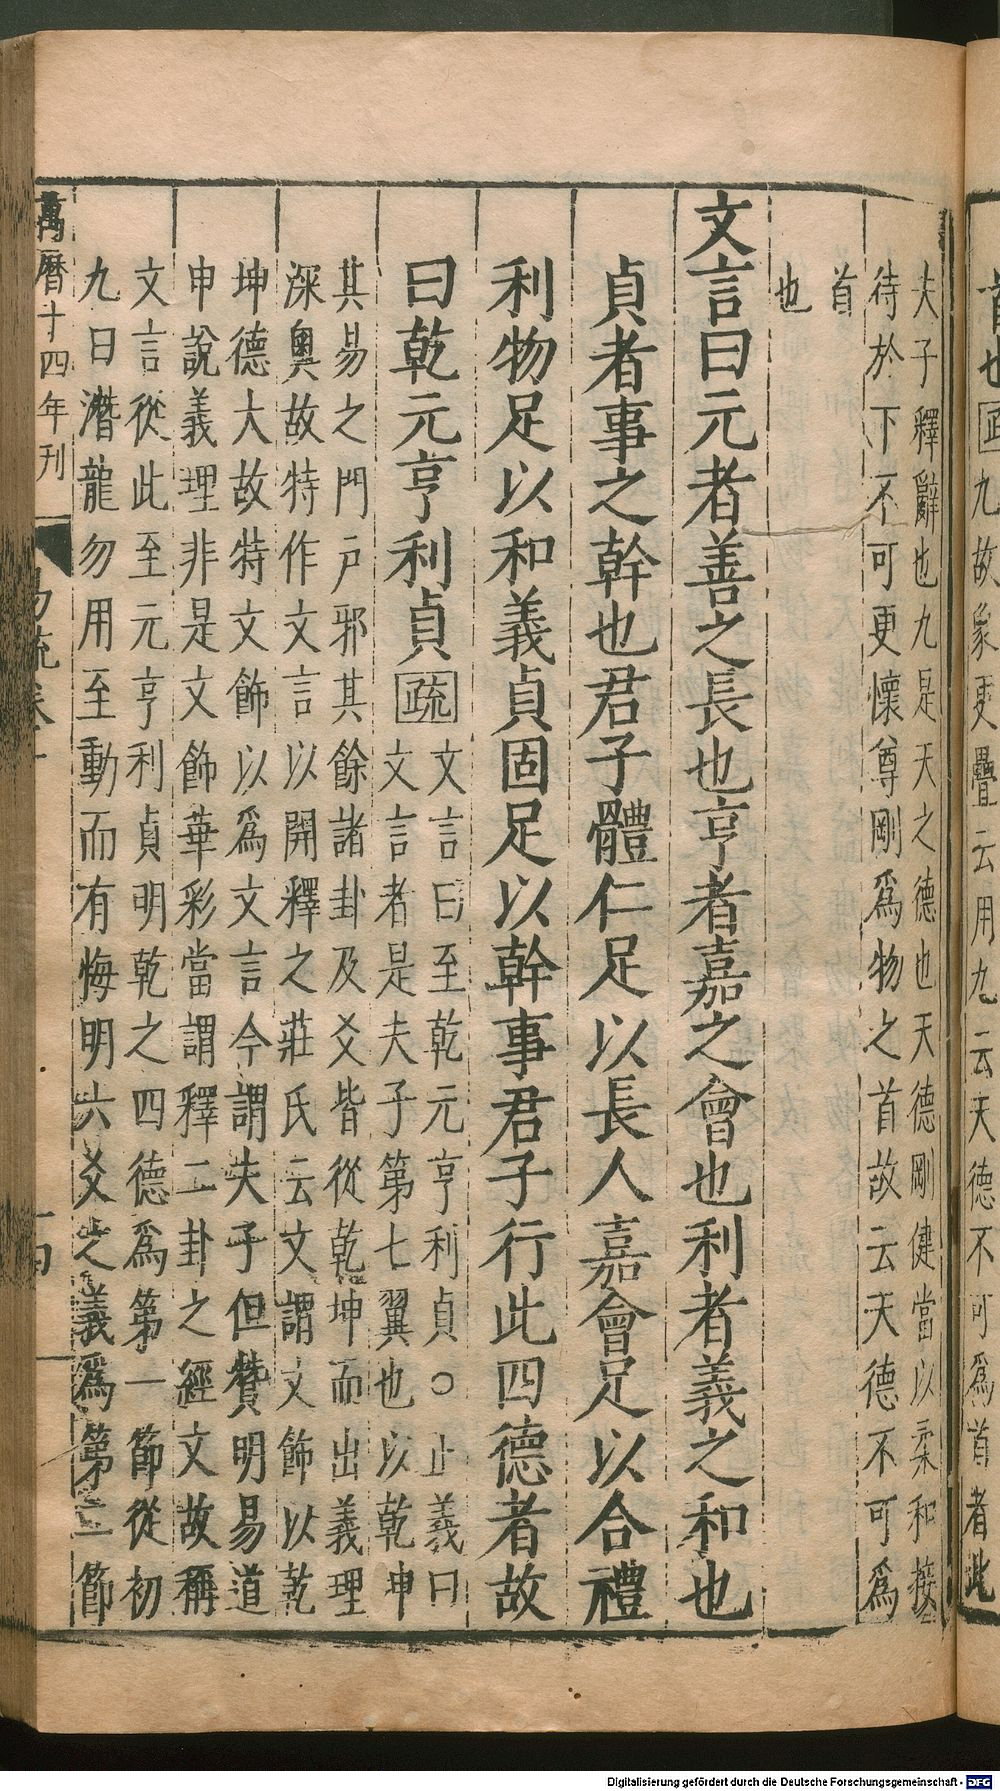 九故象更疊云用九云天德不可爲首者此
夫子釋辭也九是天之德也天德剛健當以柔和接
待於下不可更懷尊剛爲物之首故云天德不可爲
首
也
文言曰元者善之長也亨者嘉之會也利者義之和也
貞者事之幹也君子體仁足以長人嘉會足以合禮
利物足以和義貞固足以幹事君子行此四德者故
曰乾元亨利貞疏
文言曰至乾元亨利貞○止義曰
文言者是夫子第七翼也以乾坤
其易之門戶邪其餘諸卦及爻皆從乾坤而出義理
深奧故特作文言以開釋之莊氏云文謂文飾以乾
坤德大故特文飾以爲文言今謂夫子但贊明易道
申說義理非是文飾華彩當謂釋二卦之經文故稱
文言從此至元亨利貞明乾之四德爲第一節從初
九日潛龍勿用至動而有悔明六爻之義爲第二節
萬曆十四年刊
易疏卷一
Digitalisierung gefördert durch die Deutsche Forschungsgemeinschaft - DFG